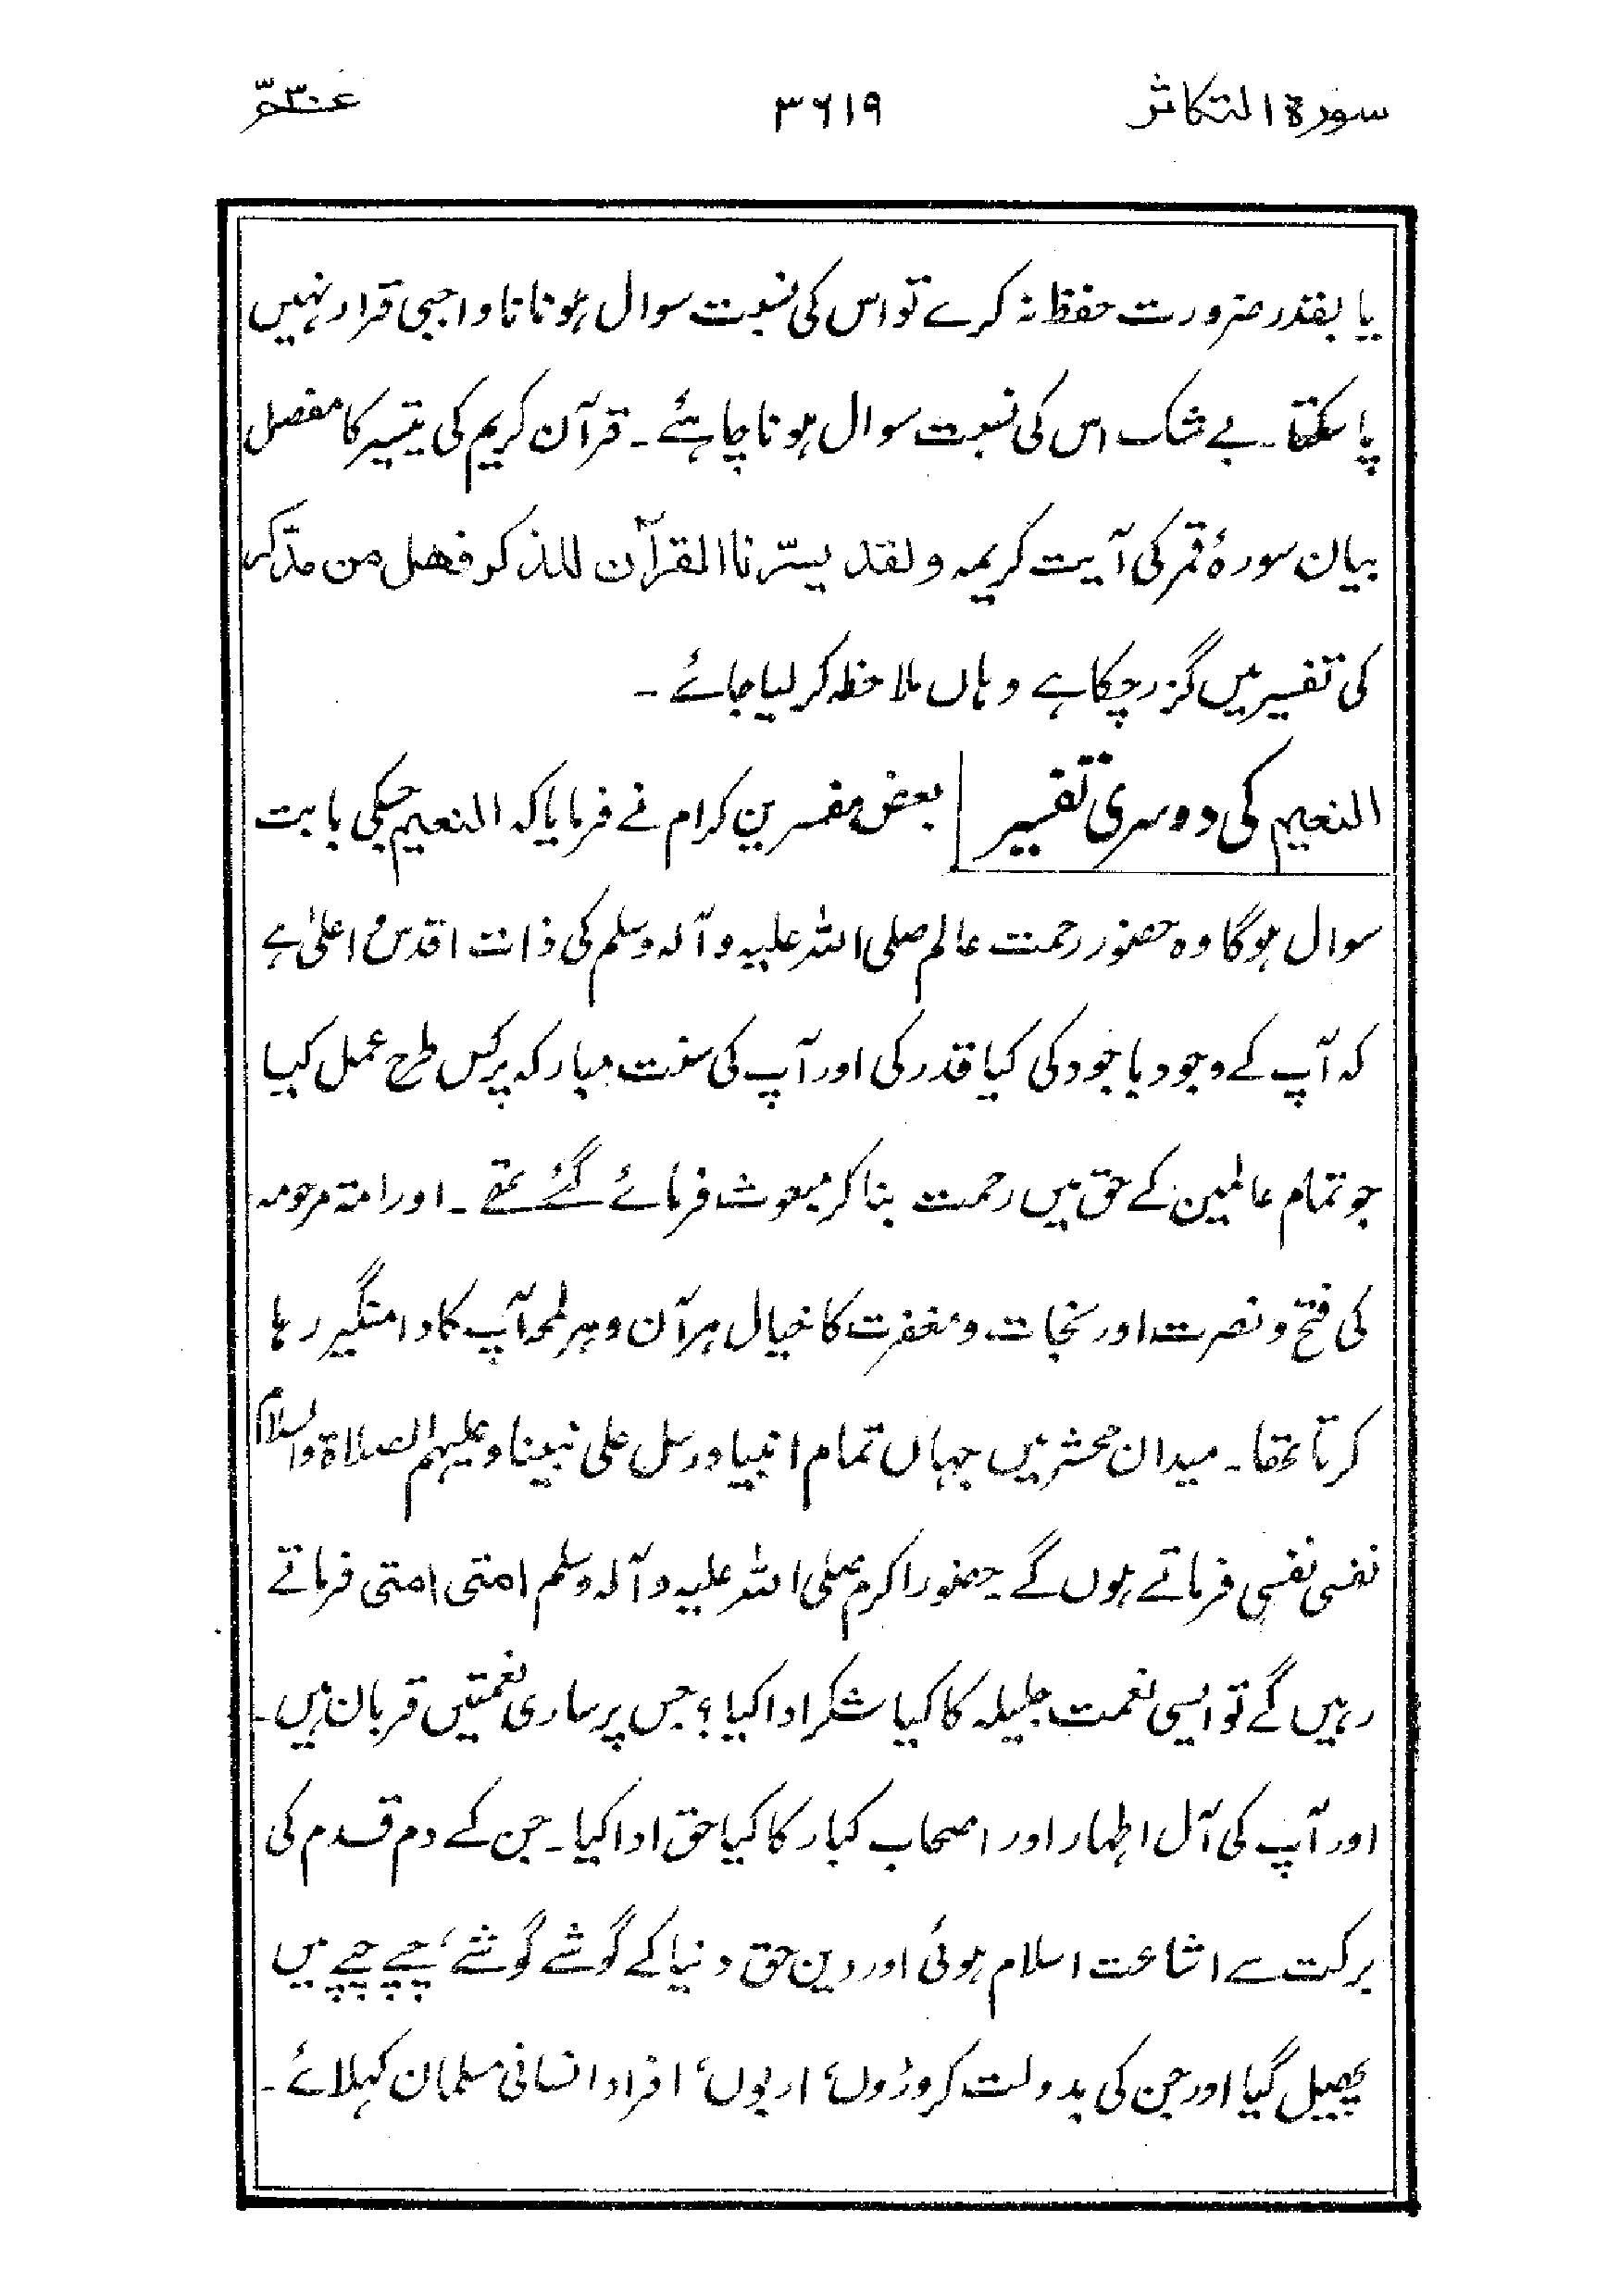 سورۃ التکاثر ۳۶۱۹ عمّ ۳۰
یا بقدر ضرورت حفظ نہ کرے تو اس کی نسبت سوال ہونا ناواجبی قرار نہیں
پا سکتا۔ بے شک اس کی نسبت سوال ہونا چاہئے۔ قرآن کریم کی تیسیر کا مفصل
بیان سورۂ قمر کی آیت کریمہ ولقد یسّرنا القرآن للذکر فھل من مدّکر
کی تفسیر میں گزر چکا ہے وہاں ملاحظہ کر لیا جائے۔
النعیم کی دوسری تفسیر بعض مفسرین کرام نے فرمایا کہ النعیم جسکی بابت
سوال ہوگا وہ حضور رحمت عالم صلی اللہ علیہ وآلہ وسلم کی ذات اقدس اعلیٰ ہے
کہ آپ کے وجود باجود کی کیا قدر کی اور آپ کی سنت مبارکہ پر کس طرح عمل کیا
جو تمام عالمین کے حق میں رحمت بنا کر مبعوث فرمائے گئے تھے۔ اور امتہ مرحومہ
کی فتح و نصرت اور نجات و مغفرت کا خیال ہر آن و ہر لمحہ آپ کا دامنگیر رہا
کرتا تھا۔ میدان محشر میں جہاں تمام انبیا ورسل علی نبینا وعلیہم الصلاۃ والسلام
نفسی نفسی فرماتے ہوں گے حضور اکرم صلی اللہ علیہ وآلہ وسلم امتی امتی فرماتے
رہیں گے تو ایسی نعمت جلیلہ کا کیا شکر ادا کیا؟ جس پر ساری نعمتیں قربان ہیں۔
اور آپ کی آل اطہار اور اصحاب کبار کا کیا حق ادا کیا۔ جن کے دم قدم کی
برکت سے اشاعت اسلام ہوئی اور دین حق دنیا کے گوشے گوشے، چپے چپے میں
پھیل گیا اور جن کی بدولت کروڑوں، اربوں، افراد انسانی مسلمان کہلائے۔